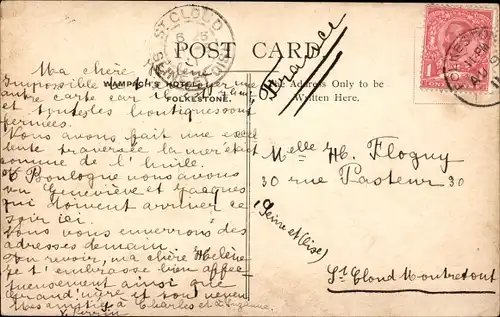 POST CARD
ST CLOUD
France
WAMPACH'S HOTEL
FOLKESTONE.
The Address Only to be
Written Here.
FOLKESTONE
Ma chère Hélène
Impossible
autre carte car
et toutes les boutiques sont
fermées.
Nous avons fait une excel
lente traversée la mer était
comme de l'huile.
A Boulogne nous avons
vu Geneviève et Jacques
qui doivent arriver ce
soir ici.
Nous vous enverrons des
adresses demain.
Au revoir, ma chère Hélène
je t'embrasse bien affec
tueusement ainsi que
grand'mère et ton neveu
Mes amitiés à Charles et à Suzanne.
Melle H. Floguy
30 rue Pasteur 30
(Seine et Oise)
St Cloud Montretout